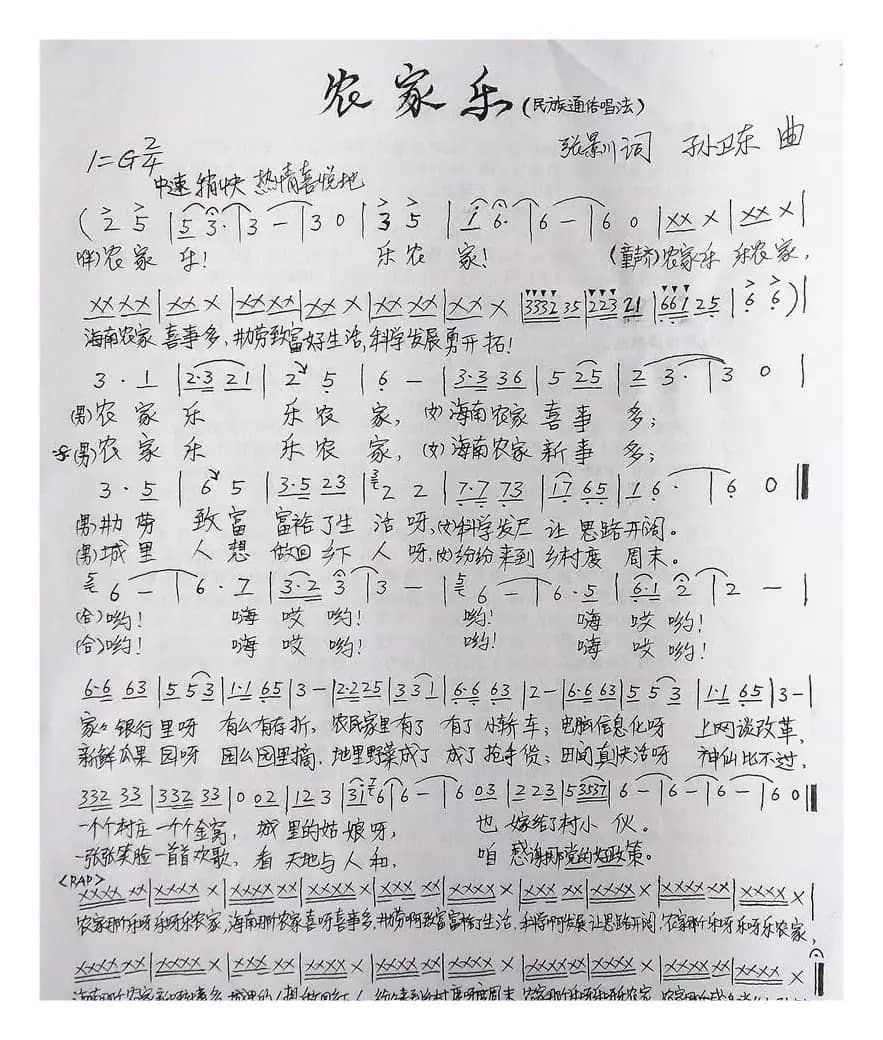 农家乐(民族通俗唱法)
张景川词 孙卫东 曲
1=G 2/4
中速 稍快 热情喜悦地
(2 5 | 5 3· | 3 — | 3 0 | 3 5 | 1 6· | 6 — | 6 0 | XX X | XX X |
(伴)农家乐! 乐农家! (童声)农家乐 乐农家,
XX XX | XX X | XX XX | XX X | XX XX | XX X | 3332 35 | 223 21 | 661 25 | 6 6 ) |
海南农家喜事多,勤劳致富好生活,科学发展勇开拓!
3 · 1 | 2·3 21 | 2 5 | 6 — | 3·3 36 | 5 25 | 2 3· | 3 0 |
(男)农家乐 乐农家, (女)海南农家喜事多;
(男)农家乐 乐农家, (女)海南农家新事多;
3 · 5 | 6 5 | 3·5 23 | 2 2 | 7·7 73 | 17 65 | 1 6· | 6 0 ‖
(男)勤劳 致富 富裕了生活呀,(女)科学发展 让思路开阔。
(男)城里人想 做回乡下人呀,(女)纷纷来到 乡村度周末。
6 — | 6 · 7 | 3·2 3 | 3 — | 6 — | 6 · 5 | 6·1 2 | 2 — |
(合)哟! 嗨哎哟! 哟! 嗨哎哟!
(合)哟! 嗨哎哟! 哟! 嗨哎哟!
6·6 63 | 5 5 3 | 1·1 65 | 3 — | 2·2 25 | 3 3 1 | 6·6 63 | 2 — | 6·6 63 | 5 5 3 | 1·1 65 | 3 — |
家々银行里呀 有么有存折, 农民家里有了 有了小轿车; 电脑信息化呀 上网谈改革,
新鲜瓜果园呀 园么园里摘, 地里野菜成了 成了抢手货; 田间真快活呀 神仙比不过,
332 33 | 332 33 | 0 02 | 12 3 | 31 6 | 6 — | 6 03 | 223 | 53537 | 6 — | 6 — | 6 — | 6 0 ‖
一个个村庄一个个金窝, 城里的姑娘呀, 也嫁给了村小伙。
一张张笑脸一首首欢歌, 看天地与人和, 咱感谢那党的好政策。
<RAP>
XXXX XX | XXXX X | XXXX XX | XXXX X | XXX XX | XXXX X | XXX XX | XXXX X | XXXX XX | XXXX X |
农家那个乐呀乐呀乐农家,海南那个农家喜呀喜事多,勤劳啊致富富裕了生活,科学啊发展让思路开阔,农家那个乐呀乐呀乐农家,
XXXX XX | XXXX X | XXX XX | XXXX X | XXXX XX | XXXX X | XXXX XX | XXXX X | XXXX XX | XXXX X ‖